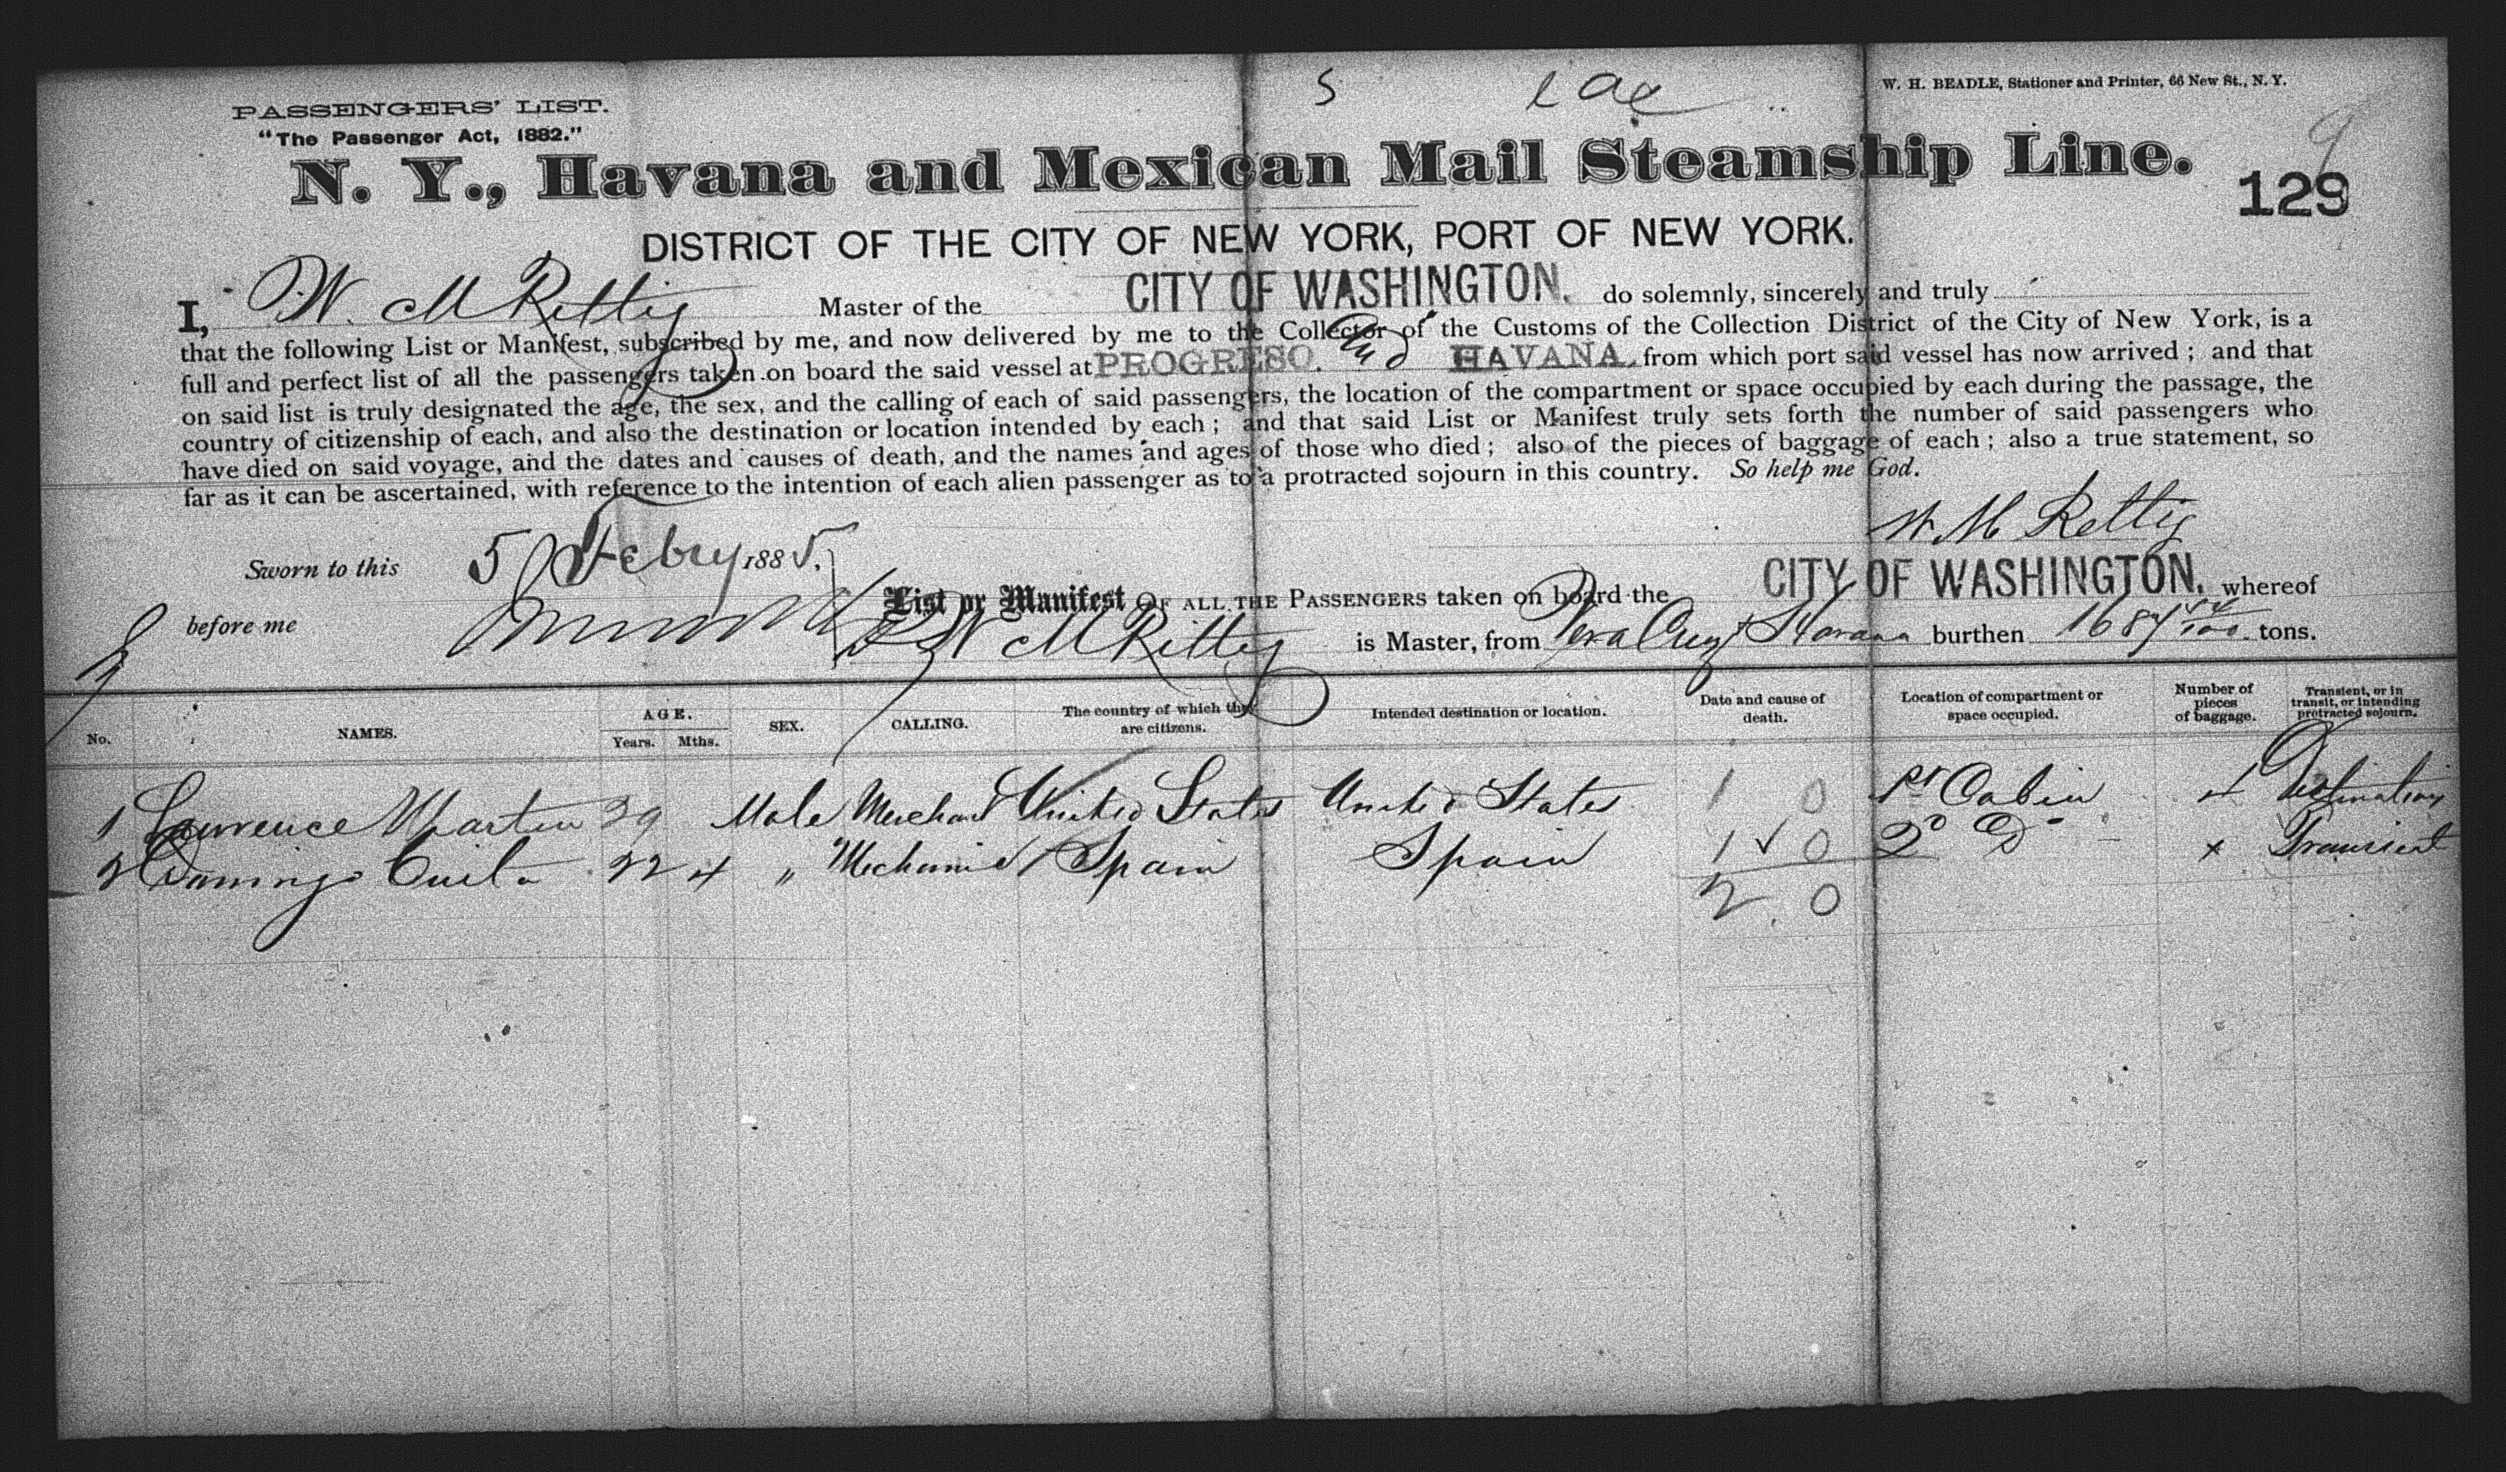 S
W. H. BEADLE, Stationer and Printer, 66 New St., N. Y.
PASSENGERS' LIST.
"The Passenger Act, 1882."
9
N. Y., Havana and Mexican Mail Steamship Line.
129
DISTRICT OF THE CITY OF NEW YORK, PORT OF NEW YORK.
I, W. M Rettig Master of the CITY OF WASHINGTON. do solemnly, sincerely and truly
that the following List or Manifest, subscribed by me, and now delivered by me to the Collector of the Customs of the Collection District of the City of New York, is a
full and perfect list of all the passengers taken on board the said vessel at PROGRESO. and HAVANA. from which port said vessel has now arrived; and that
on said list is truly designated the age, the sex, and the calling of each of said passengers, the location of the compartment or space occupied by each during the passage, the
country of citizenship of each, and also the destination or location intended by each; and that said List or Manifest truly sets forth the number of said passengers who
have died on said voyage, and the dates and causes of death, and the names and ages of those who died; also of the pieces of baggage of each; also a true statement, so
far as it can be ascertained, with reference to the intention of each alien passenger as to a protracted sojourn in this country. So help me God.
W. M Rettig
Sworn to this 5 Febry 1885.
List or Manifest OF ALL THE PASSENGERS taken on board the CITY OF WASHINGTON. whereof
before me
W M Rettig is Master, from Vera Cruz + Havana burthen tons.
No. NAMES. AGE. Years. Mths. SEX. CALLING. The country of which they are citizens. Intended destination or location. Date and cause of death. Location of compartment or space occupied. Number of pieces of baggage. Transient, or in transit, or intending protracted sojourn.
1 Lawrence Martin 39 Male Merchant United States United States 1 0 1st Cabin Destination
2 Domingo 22 4 " Mechanic Spain Spain 1 ✓ 0 2d Do x Transient
2. 0